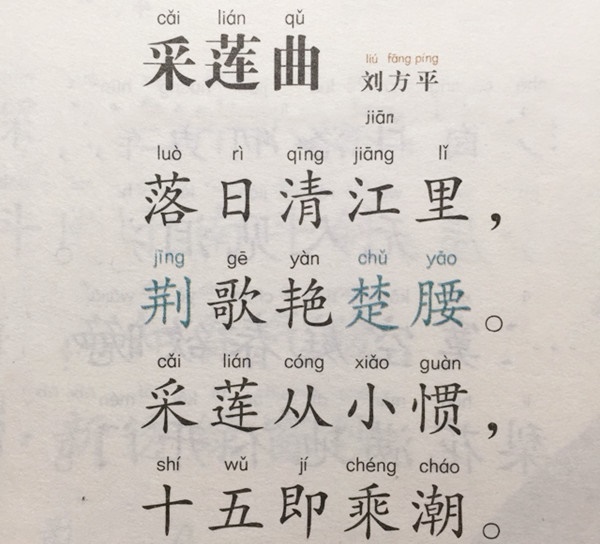 cǎi lián qǔ
采莲曲
liú fāng píng
刘方平
jiān
luò rì qīng jiāng lǐ
落日清江里，
jīng gē yàn chǔ yāo
荆歌艳楚腰。
cǎi lián cóng xiǎo guàn
采莲从小惯，
shí wǔ jí chéng cháo
十五即乘潮。